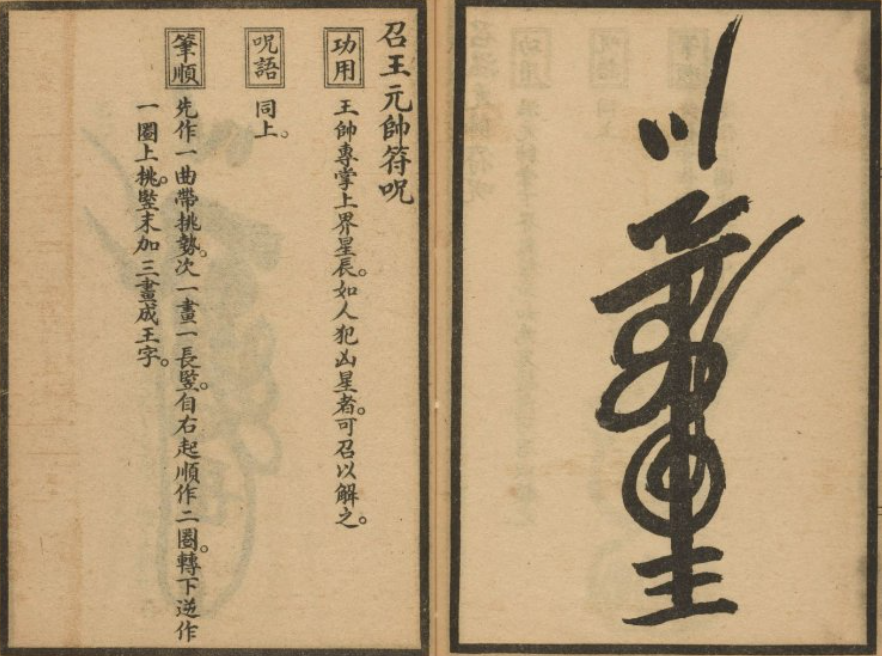 召王元帥符呪
功用
王帥專掌上界星辰。如人犯凶星者。可召以解之。
呪語
同上。
筆順
先作一曲帶挑勢。次一畫一長竪。自右起順作二圈。轉下逆作
一圈上挑。竪末加三畫成王字。